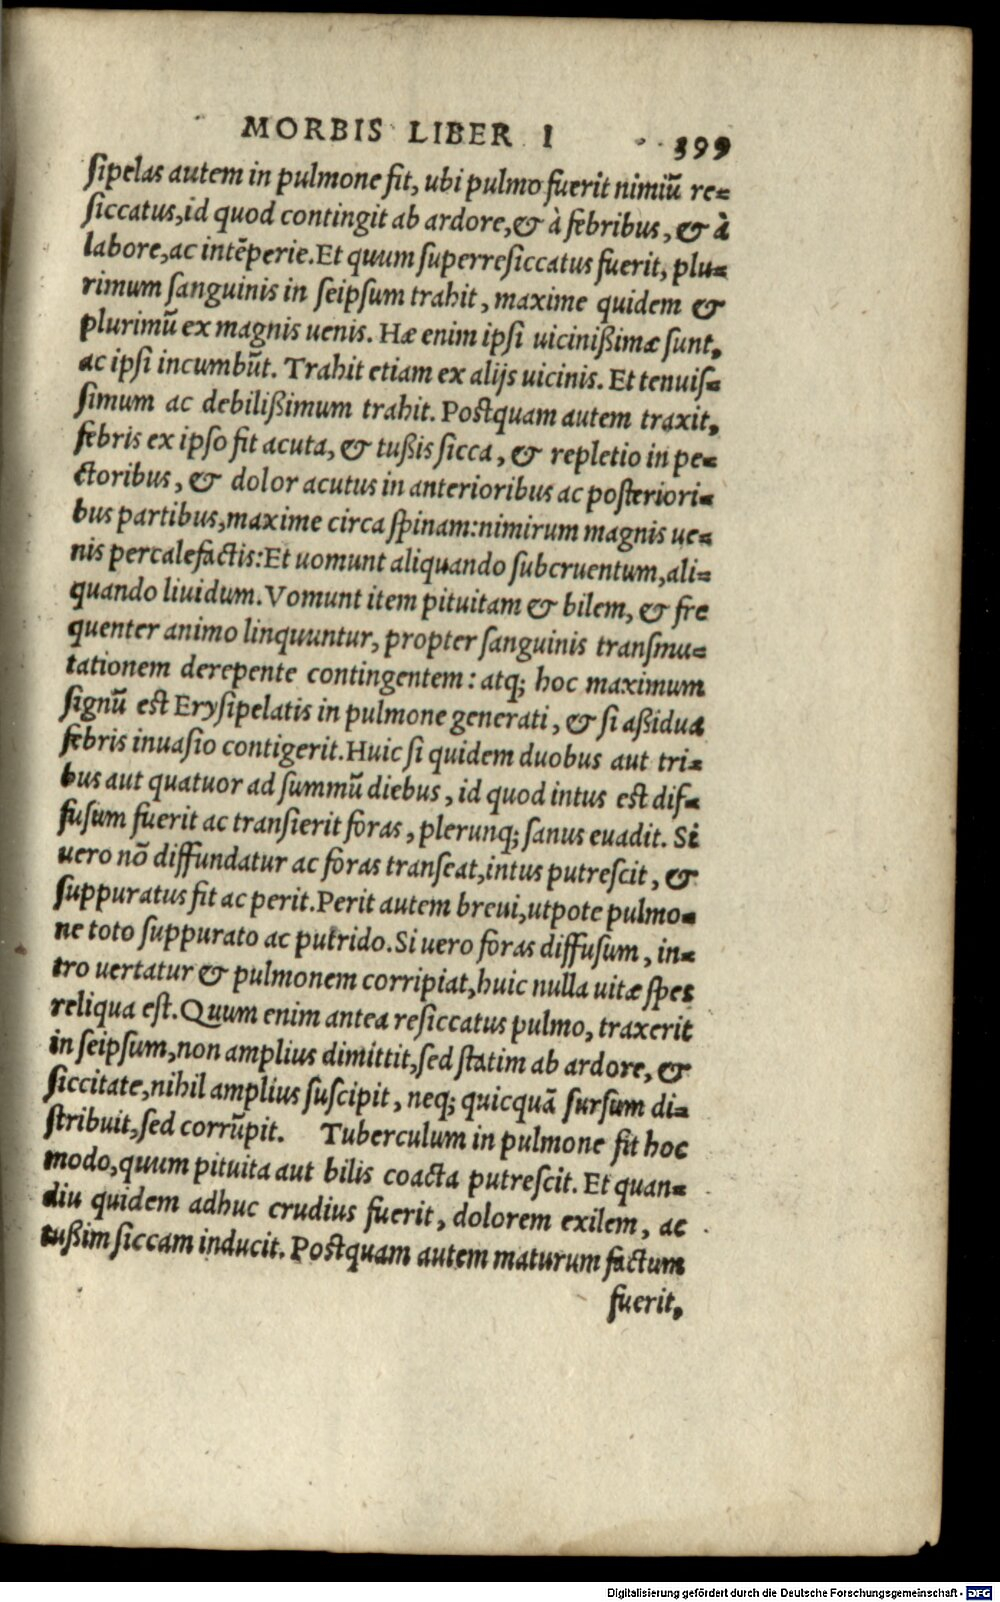 MORBIS LIBER I 399
ſipelas autem in pulmone fit, ubi pulmo fuerit nimiũ re-
ſiccatus, id quod contingit ab ardore, & à febribus, & à
labore, ac intẽperie. Et quum ſuperreſiccatus fuerit, plu-
rimum ſanguinis in ſeipſum trahit, maxime quidem &
plurimũ ex magnis uenis. Hæ enim ipſi uicinißimæ ſunt,
ac ipſi incumbũt. Trahit etiam ex alijs uicinis. Et tenuiſ-
ſimum ac debilißimum trahit. Poſtquam autem traxit,
febris ex ipſo fit acuta, & tußis ſicca, & repletio in pe-
ctoribus, & dolor acutus in anterioribus ac poſteriori-
bus partibus, maxime circa ſpinam: nimirum magnis ue-
nis percalefactis: Et uomunt aliquando ſubcruentum, ali-
quando liuidum. Vomunt item pituitam & bilem, & fre
quenter animo linquuntur, propter ſanguinis tranſmu-
tationem derepente contingentem: atq; hoc maximum
ſignũ eſt Eryſipelatis in pulmone generati, & ſi aßidua
febris inuaſio contigerit. Huic ſi quidem duobus aut tri-
bus aut quatuor ad ſummũ diebus, id quod intus eſt dif-
fuſum fuerit ac tranſierit foras, plerunq; ſanus euadit. Si
uero nõ diffundatur ac foras tranſeat, intus putreſcit, &
ſuppuratus fit ac perit. Perit autem breui, utpote pulmo-
ne toto ſuppurato ac putrido. Si uero foras diffuſum, in-
tro uertatur & pulmonem corripiat, huic nulla uitæ ſpes
reliqua eſt. Quum enim antea reſiccatus pulmo, traxerit
in ſeipſum, non amplius dimittit, ſed ſtatim ab ardore, &
ſiccitate, nihil amplius ſuſcipit, neq; quicquã ſurſum di-
ſtribuit, ſed corrũpit. Tuberculum in pulmone fit hoc
modo, quum pituita aut bilis coacta putreſcit. Et quan-
diu quidem adhuc crudius fuerit, dolorem exilem, ac
tußim ſiccam inducit. Poſtquam autem maturum factum
fuerit,
Digitalisierung gefördert durch die Deutsche Forschungsgemeinschaft - DFG